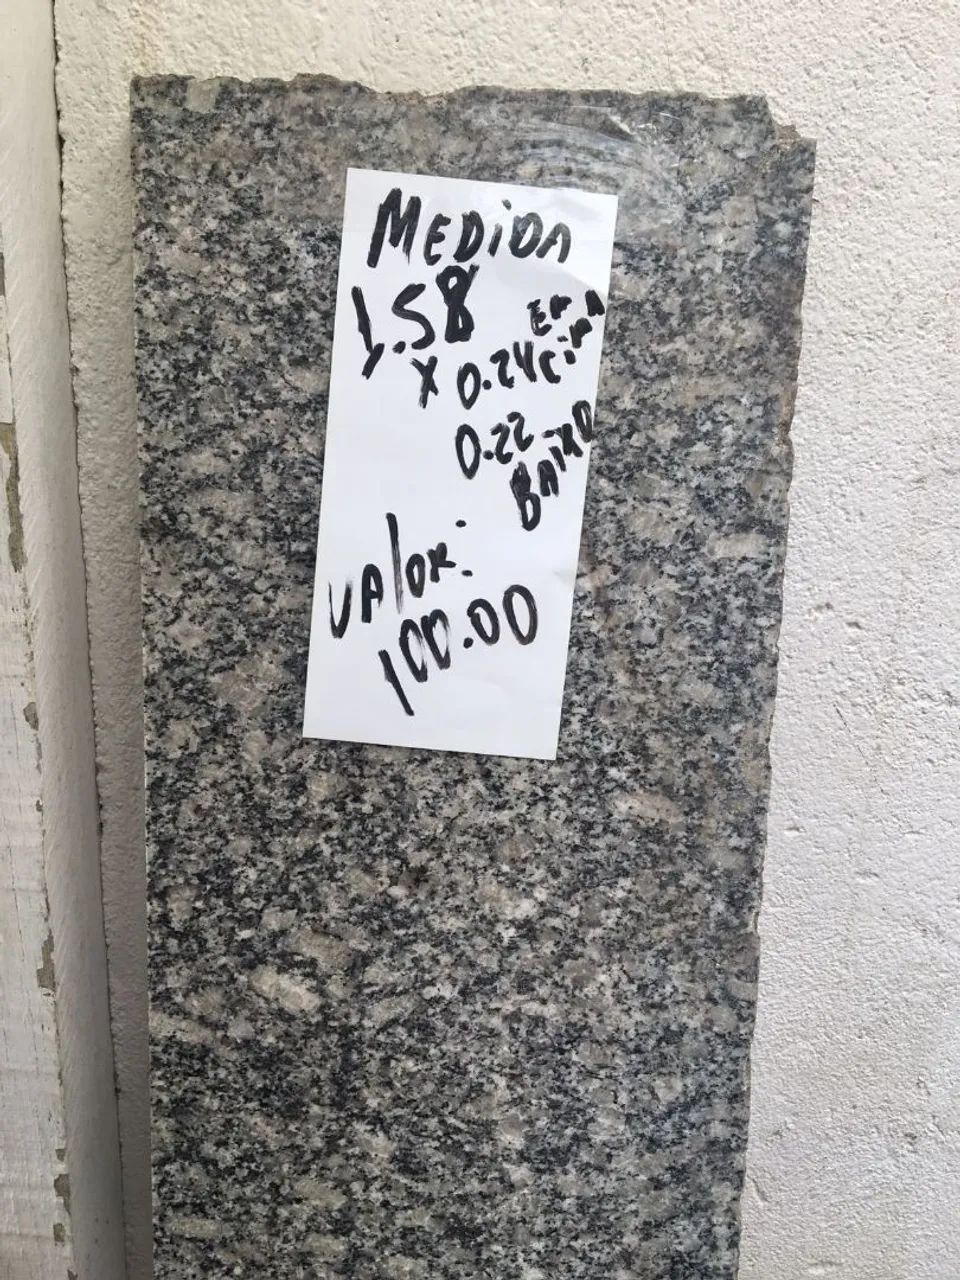 MEDiDA
1.58 Em
x 0.24 Cima
0.22 BAixo
VAlOR:
100.00